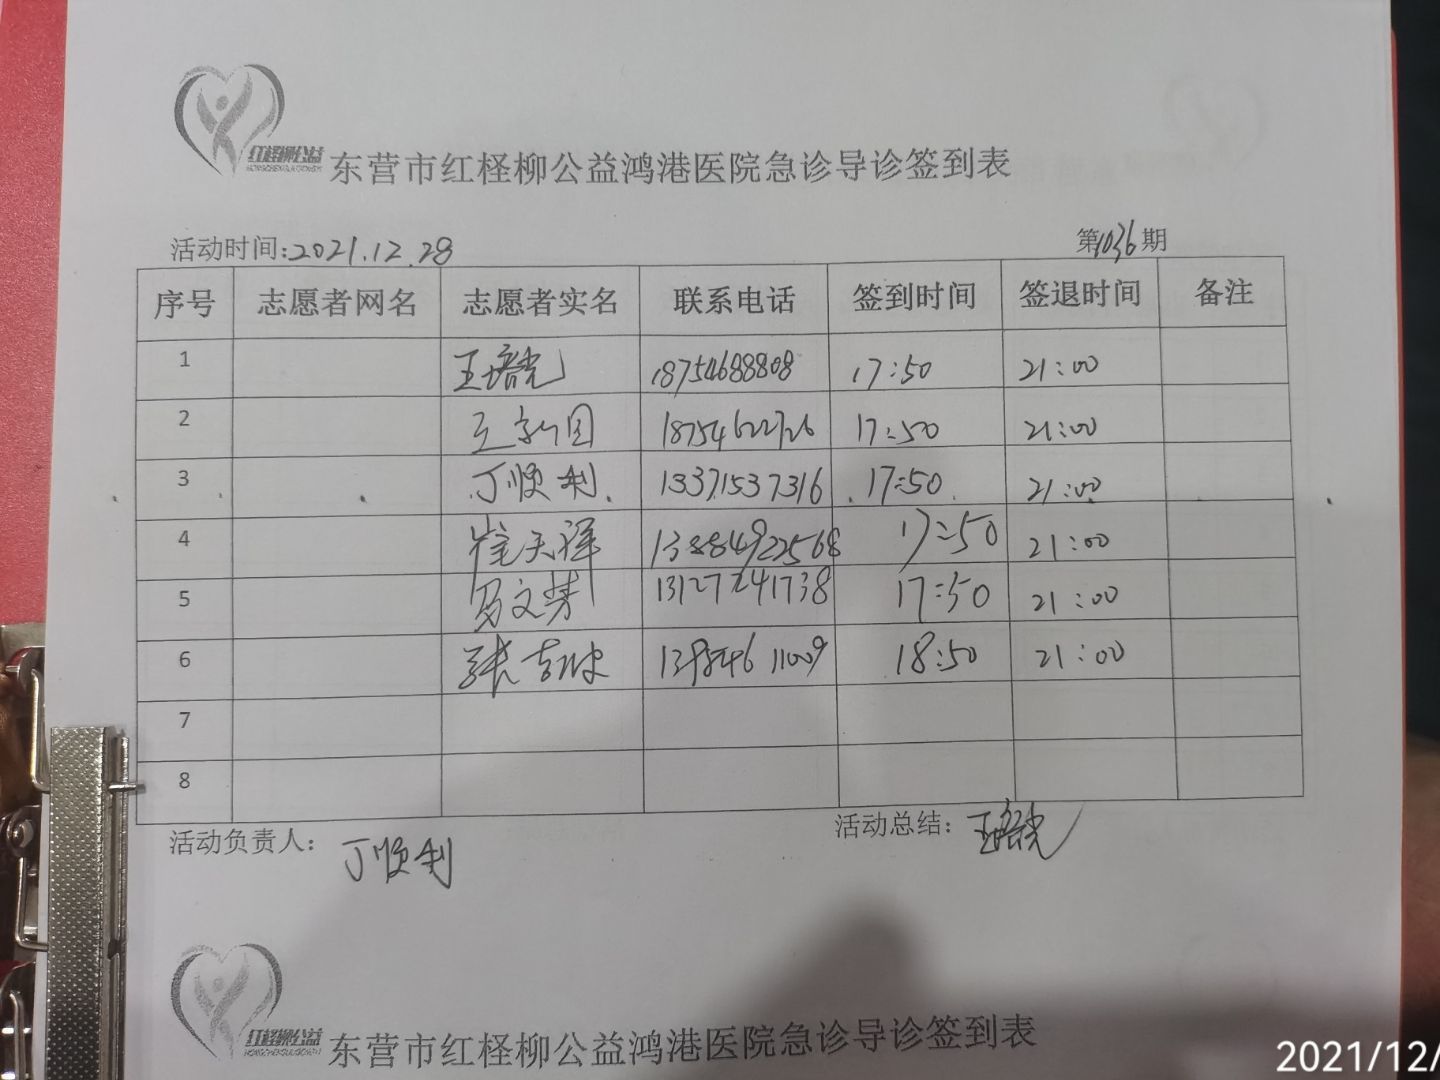 红柽柳公益
东营市红柽柳公益鸿港医院急诊导诊签到表
活动时间:2021.12.28 第1036期
序号 志愿者网名 志愿者实名 联系电话 签到时间 签退时间 备注
1 王培光 18754688808 17:50 21:00
2 18754622726 17:50 21:00
3 丁顺利 13371537316 17:50 21:00
4 崔天祥 13884922568 17:50 21:00
5 马文芳 13127241738 17:50 21:00
6 18:50 21:00
7
8
活动负责人: 丁顺利 活动总结: 王培光
红柽柳公益
东营市红柽柳公益鸿港医院急诊导诊签到表
2021/12/